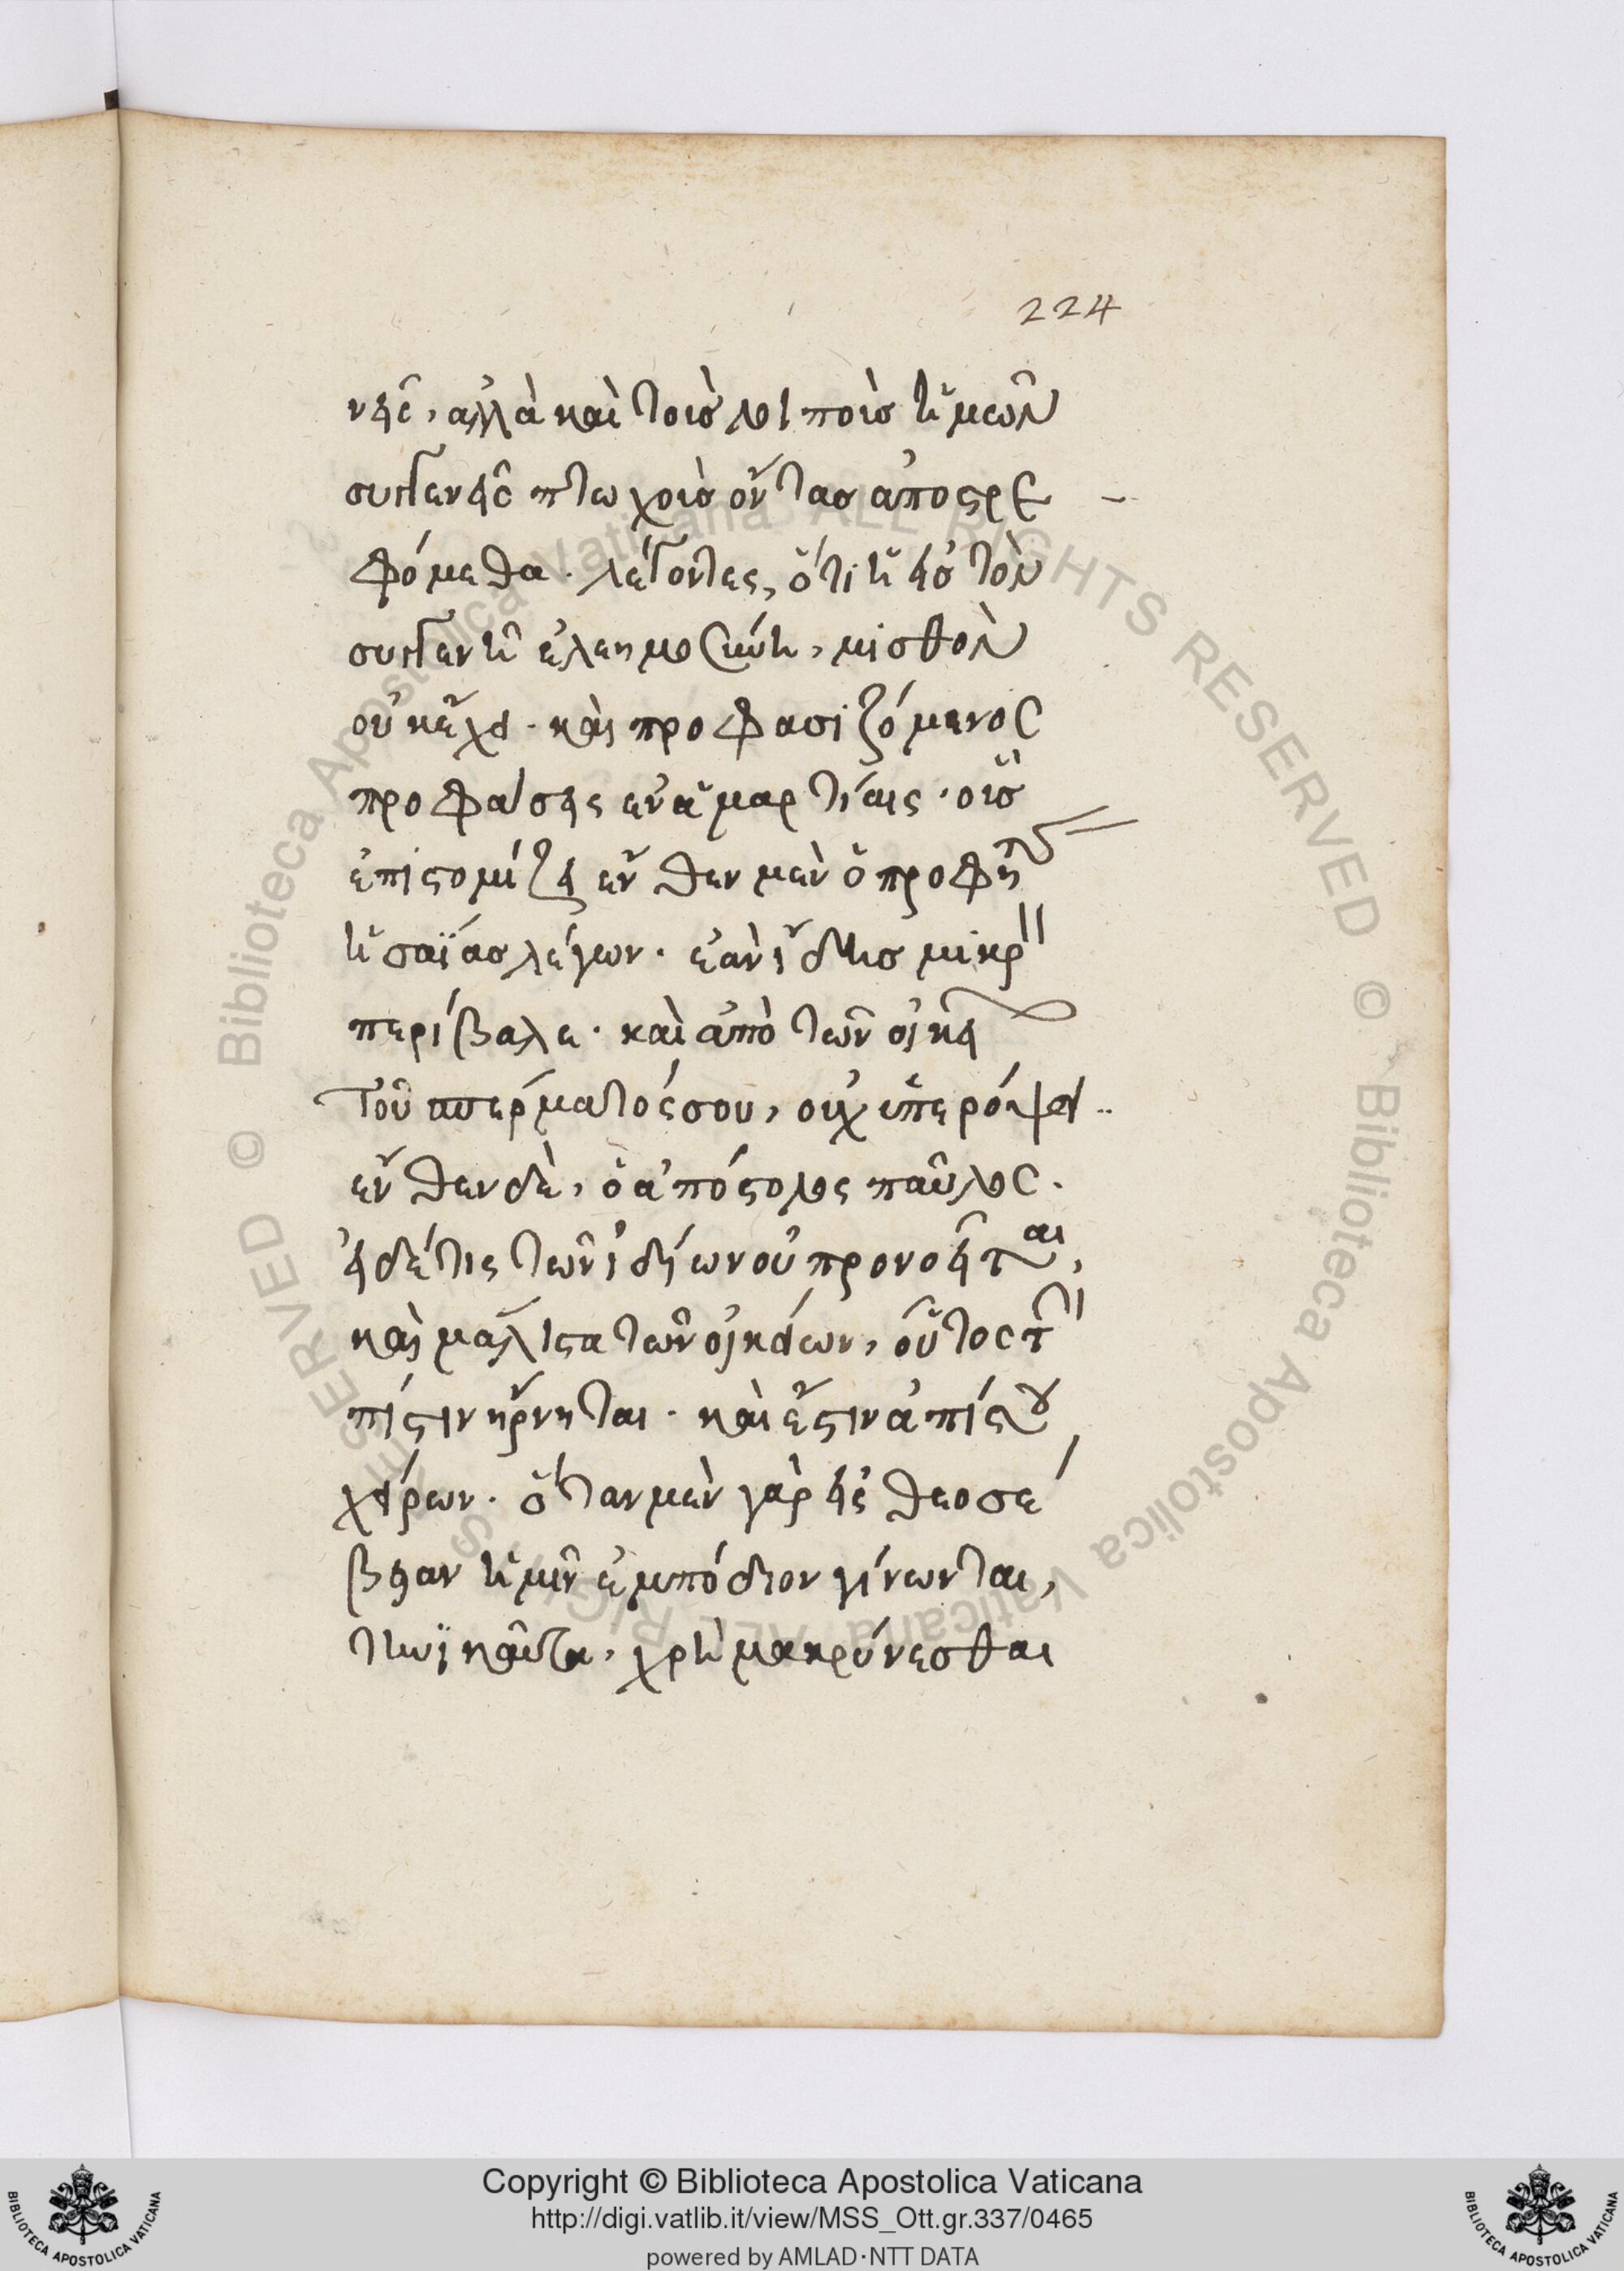 224
νεῖς, ἀλλὰ καὶ τοὺς λοιποὺς ἡμῶν
συγγενεῖς πτωχοὺς ὄντας ἀποστρε
φόμεθα. λέγοντες, ὅτι ἡ εἰς τὸν
συγγενῆ ἐλεημοσύνη, μισθὸν
οὐκ ἔχει. καὶ προφασιζόμενος
προφάσεις ἐν ἁμαρτίαις. οὓς
ἐπιστομίζει ἔνθεν μὲν ὁ προφή
ἡσαΐας λέγων. ἐὰν ἴδης
περίβαλε. καὶ ἀπὸ τῶν οἰκεί
τοῦ σπέρματός σου, οὐχ ὑπερόψει..
ἔνθεν δὲ, ὁ ἀπόστολος παῦλος.
εἰ δέ τις τῶν ἰδίων οὐ προνοεῖται,
καὶ μάλιστα τῶν οἰκείων, οὗτος τὴν
πίστιν ἤρνηται. καὶ ἔστιν ἀπίστου
χείρων. ὅταν μὲν γὰρ εἰς θεοσέ
βειαν ἡμῖν ἐμπόδιον γίνωνται,
τηνϊκαῦτα, χρὴ μακρύνεσθαι
© Biblioteca Apostolica Vaticana ALL RIGHTS RESERVED
© Biblioteca Apostolica Vaticana ALL RIGHTS RESERVED
Copyright © Biblioteca Apostolica Vaticana
http://digi.vatlib.it/view/MSS_Ott.gr.337/0465
powered by AMLAD·NTT DATA
BIBLIOTECA APOSTOLICA VATICANA
BIBLIOTECA APOSTOLICA VATICANA